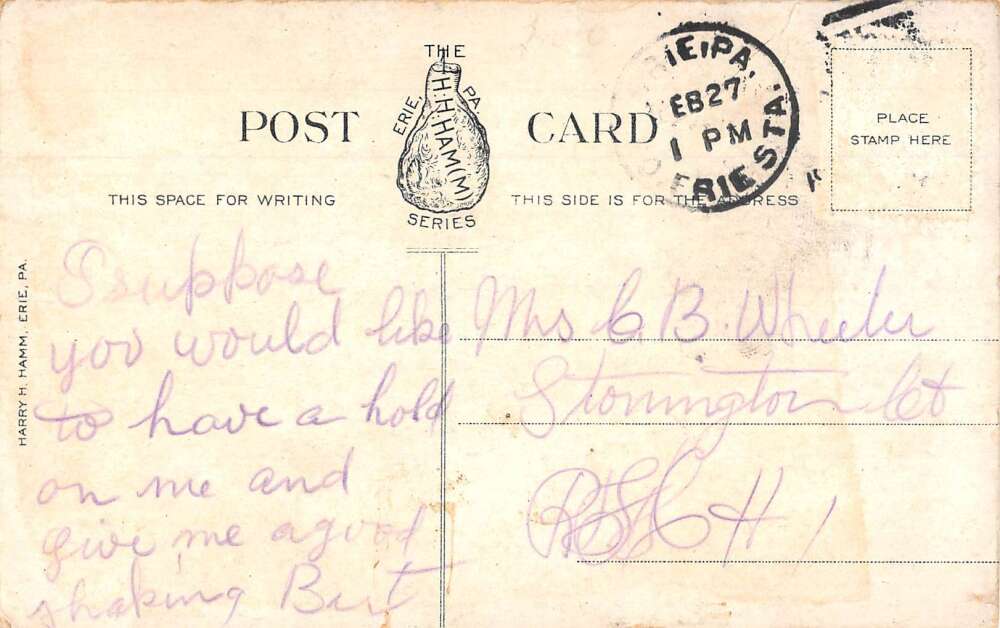 THE
H.H.HAM(M)
ERIE, PA.
SERIES
POST CARD
THIS SPACE FOR WRITING
THIS SIDE IS FOR THE ADDRESS
ERIE, PA.
FEB 27
1 PM
ERIE STA.
PLACE
STAMP HERE
HARRY H. HAMM, ERIE, PA.
I suppose
you would like
to have a hold
on me and
give me a good
shaking Bert
Mrs C. B. Wheeler
Stonington Ct